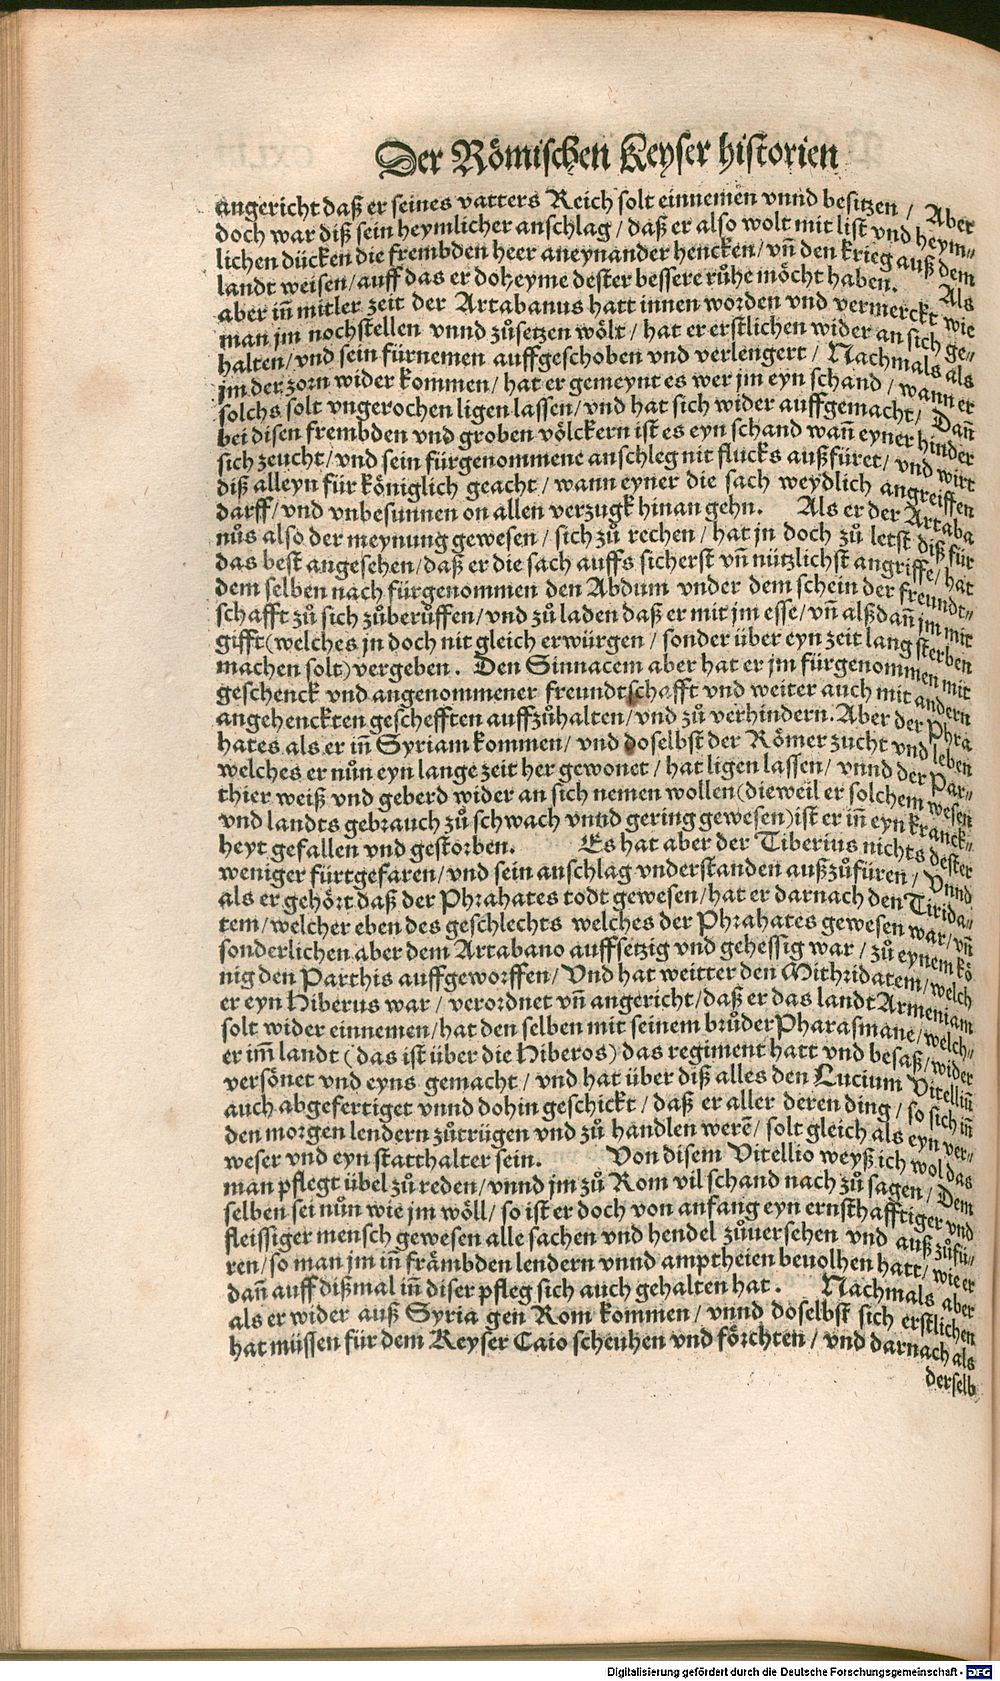 Der Römischen Keyser historien
angericht daß er seines vatters Reich solt einnemen vnnd besitzen / Aber
doch war diß sein heymlicher anschlag / daß er also wolt mit list vnd heym⸗
lichen dücken die frembden heer aneynander hencken / vñ den krieg auß dem
landt weisen / auff das er doheyme dester bessere růhe möcht haben. Als
aber iñ mitler zeit der Artabanus hatt innen worden vnd vermerckt wie
man jm nochstellen vnnd zůsetzen wölt / hat er erstlichen wider an sich ge⸗
halten / vnd sein fürnemen auffgeschoben vnd verlengert / Nachmals als
jm der zorn wider kommen / hat er gemeynt es wer jm eyn schand / wann er
solchs solt vngerochen ligen lassen / vnd hat sich wider auffgemacht / Dañ
bei disen frembden vnd groben völckern ist es eyn schand wañ eyner hinder
sich zeucht / vnd sein fürgenommene anschleg nit flucks außfüret / vnd wirt
diß alleyn für königlich geacht / wann eyner die sach weydlich angreiffen
darff / vnd vnbesunnen on allen verzugk hinan gehn. Als er der Artaba
nůs also der meynung gewesen / sich zů rechen / hat jn doch zů letst diß für
das best angesehen / daß er die sach auffs sicherst vñ nützlichst angriffe / hat
dem selben nach fürgenommen den Abdum vnder dem schein der freundt⸗
schafft zů sich zůberůffen / vnd zů laden daß er mit jm esse / vñ alßdañ jm mit
gifft (welches jn doch nit gleich erwürgen / sonder über eyn zeit lang sterben
machen solt) vergeben. Den Sinnacem aber hat er jm fürgenommen mit
geschenck vnd angenommener freundtschafft vnd weiter auch mit andern
angehenckten geschefften auffzůhalten / vnd zů verhindern. Aber der Phra
hates als er iñ Syriam kommen / vnd doselbst der Römer zucht vnd leben
welches er nůn eyn lange zeit her gewonet / hat ligen lassen / vnnd der Par⸗
thier weiß vnd geberd wider an sich nemen wollen (dieweil er solchem wesen
vnd landts gebrauch zů schwach vnnd gering gewesen) ist er iñ eyn kranck⸗
heyt gefallen vnd gestorben. Es hat aber der Tiberius nichts dester
weniger fürtgefaren / vnd sein anschlag vnderstanden außzůfüren / Vnnd
als er gehört daß der Phrahates todt gewesen / hat er darnach den Tirida⸗
tem / welcher eben des geschlechts welches der Phrahates gewesen war / vñ
sonderlichen aber dem Artabano auffsetzig vnd gehessig war / zů eynem kö
nig den Parthis auffgeworffen / Vnd hat weitter den Mithridatem / welch
er eyn Hiberus war / verordnet vñ angericht / daß er das landt Armeniam
solt wider einnemen / hat den selben mit seinem brůder Pharasmane / welch⸗
er im̃ landt (das ist über die Hiberos) das regiment hatt vnd besaß / wider
versönet vnd eyns gemacht / vnd hat über diß alles den Lucium Vitelliũ
auch abgefertiget vnnd dohin geschickt / daß er aller deren ding / so sich iñ
den morgen lendern zůtrügen vnd zů handlen werẽ / solt gleich als eyn ver⸗
weser vnd eyn statthalter sein. Von disem Vitellio weyß ich wol das
man pflegt übel zů reden / vnnd jm zů Rom vil schand nach zů sagen / Dem
selben sei nůn wie jm wöll / so ist er doch von anfang eyn ernsthafftiger vnd
fleissiger mensch gewesen alle sachen vnd hendel zůuersehen vnd auß zůfü⸗
ren / so man jm iñ främbden lendern vnnd amptheien beuolhen hatt / wie er
dañ auff dißmal iñ diser pfleg sich auch gehalten hat. Nachmals aber
als er wider auß Syria gen Rom kommen / vnnd doselbst sich erstlichen
hat müssen für dem Keyser Caio scheuhen vnd förchten / vnd darnach als
derselb
Digitalisierung gefördert durch die Deutsche Forschungsgemeinschaft - DFG